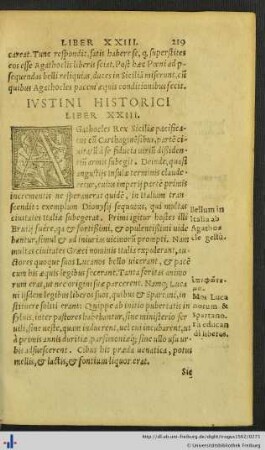 LIBER XXIII. 219
careat. Tunc respondit, satis habere se, q, superstites
eos esse Agathoclis liberis sciat. Post hæc Pœni ad p
sequendas belli reliquias, duces in Siciliã miserunt, cũ
quibus Agathocles pacem æquis conditionibus fecit.
IVSTINI HISTORICI
LIBER XXIII.
AGathocles Rex Siciliæ pacificatus
cũ Carthaginẽsibus, partẽ civitatũ
à se fiducia
armis subegit. Deinde, quasi
angustijs insulæ terminis clauderetur,
cuius imperij partẽ primis
incrementis ne sperauerat quidẽ, in Italiam transcendit:
exemplum Dionysij sequutus, qui multas
ciuitates Italiæ subegerat. Primi igitur hostes illi
Brutij fuêre, qa & fortissimi, & opulentissimi videbantur,
simul & ad iniurias vicinorũ prompti. Nam
multas ciuitates Græci nominis Italia expulerant,
auctores quoque suos Lucanos bello vicerant, & pacẽ
cum his æquis legibus fecerant. Tanta feritas animorum
erat, ut nec origini suæ parcerent. Namq; Lucani
ijsdem legibus liberos suos, quibus & Spartani, instituere
soliti erant. Quippe ab initio pubertatis in
syluis, inter pastores habebantur, sine ministerio seruili,
sine ueste, quam induerent, uel cui incubarent,
à primis annis duritiæ, parsimoniæq; sine ullo usu urbis
adsuescerent. Cibus his præda uenatica, potus
mellis, & lactis, & fontium liquor erat.
Sic
Bellum in
Italia ab
Agathocle
gestũ.
Mos Lucanorum
&
Spartano.
in educandi
liberis.
http://digi.ub.uni-freiburg.de/diglit/trogus1562/0273
© Universitätsbibliothek Freiburg